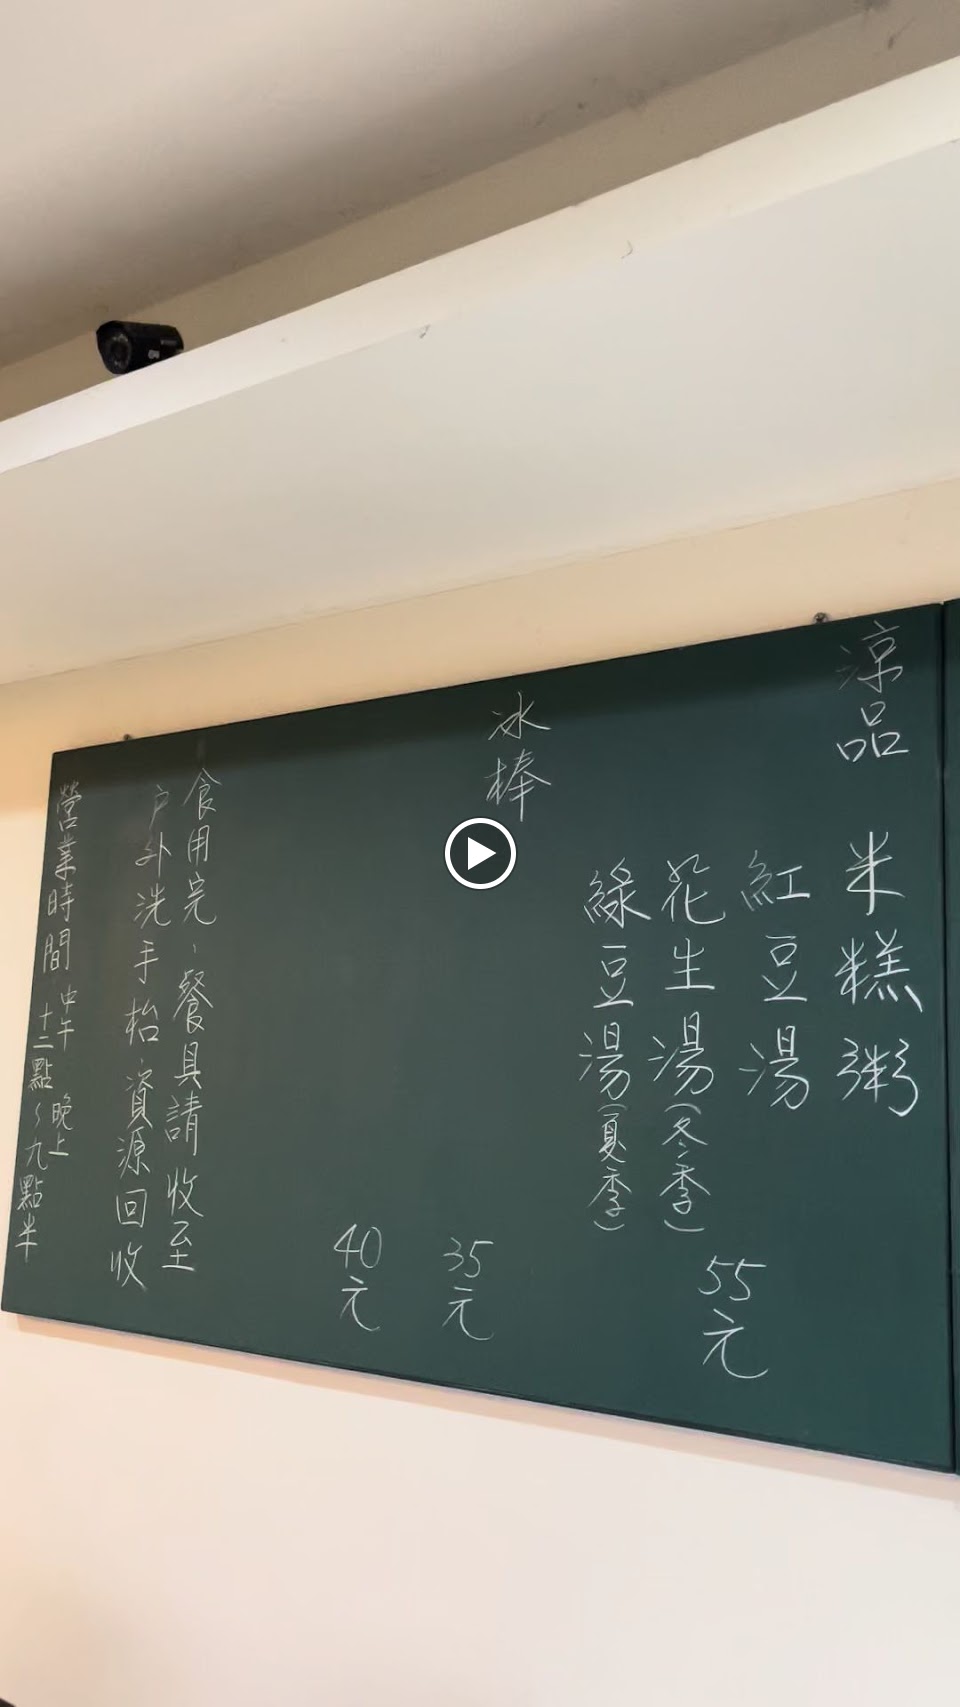 涼品
米糕粥
紅豆湯
花生湯(冬季)
綠豆湯(夏季)
55元
冰棒
35元
40元
食用完、餐具請收至
户外洗手枱、資源回收
營業時間 中午十二點~晚上九點半